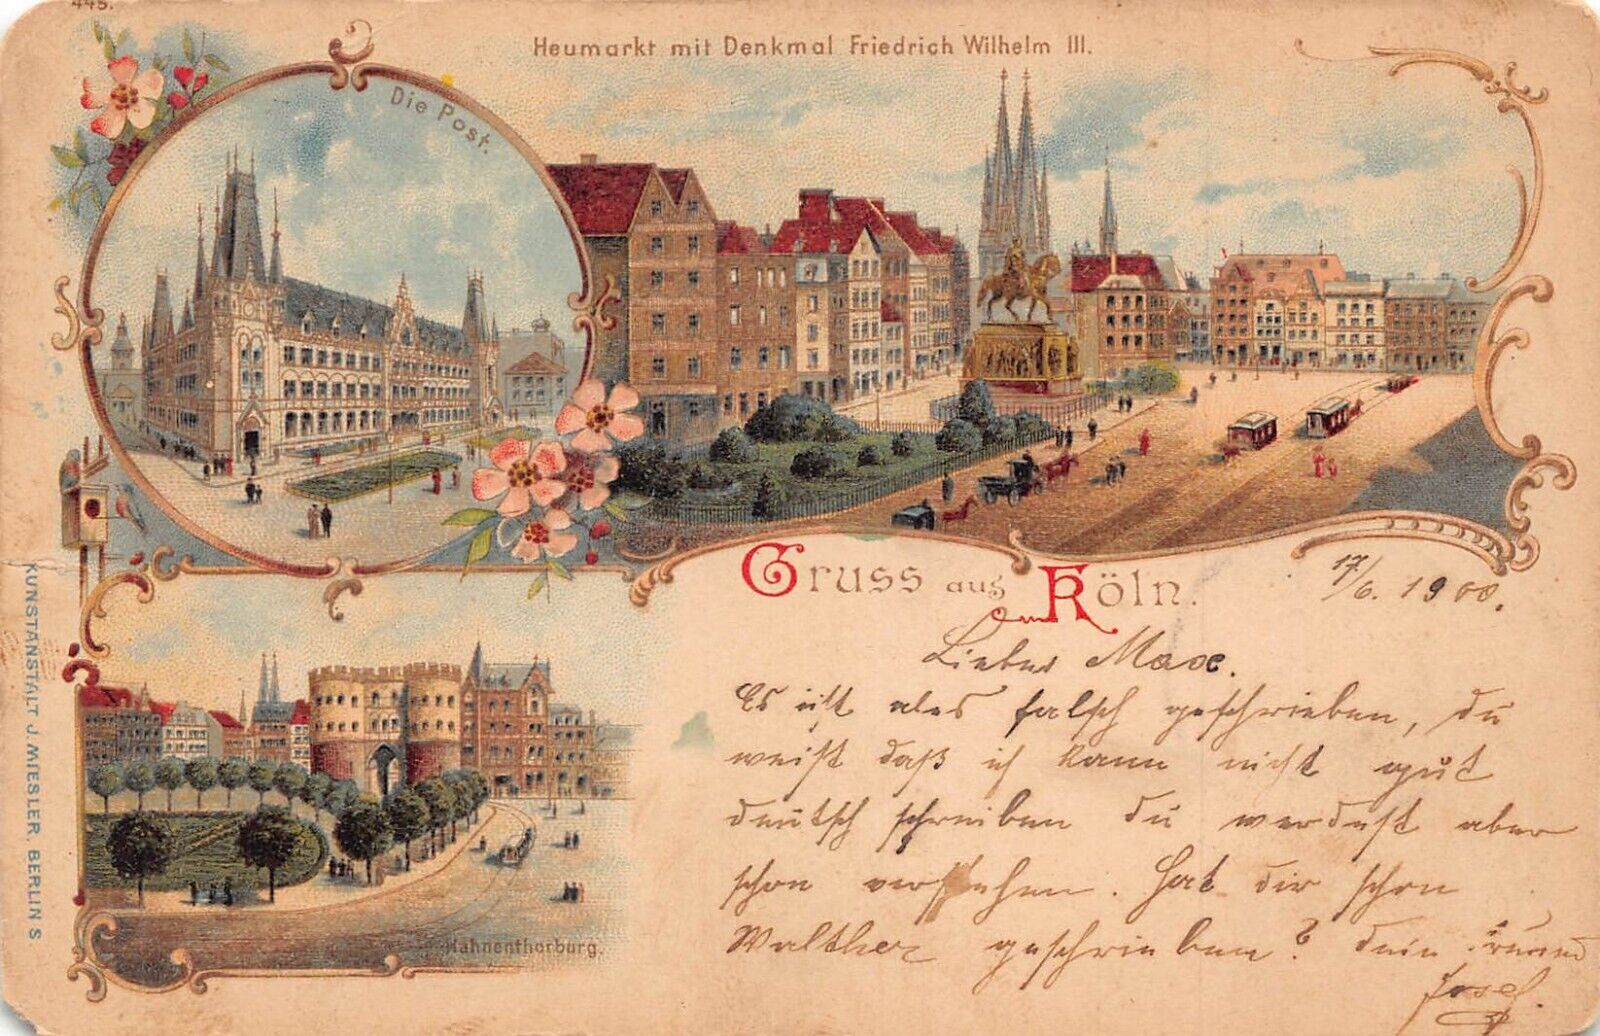 448.
Heumarkt mit Denkmal Friedrich Wilhelm III.
Die Post.
Gruss aus Köln.
17/6. 1900.
Liebes Max.
Es ist ales falsch geschrieben, du
weist daß ich kann nicht gut
deutsch schreiben du werdest aber
schon verstehen. Hat dir schon
Walther geschrieben? dein Freund
Josef.
Hahnenthorburg.
KUNSTANSTALT J. MIESLER, BERLIN S